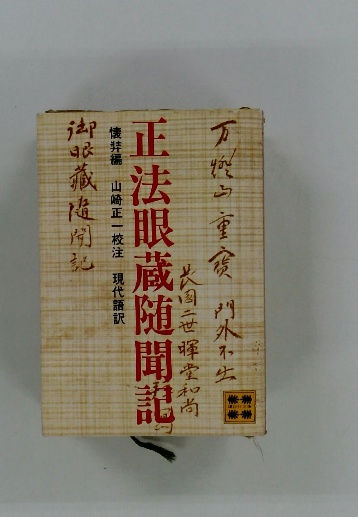 万燈山重寳 門外不出
長圓二世暉堂和尚
正法眼蔵随聞記
懐弉編 山崎正一校注 現代語訳
御眼藏随聞記